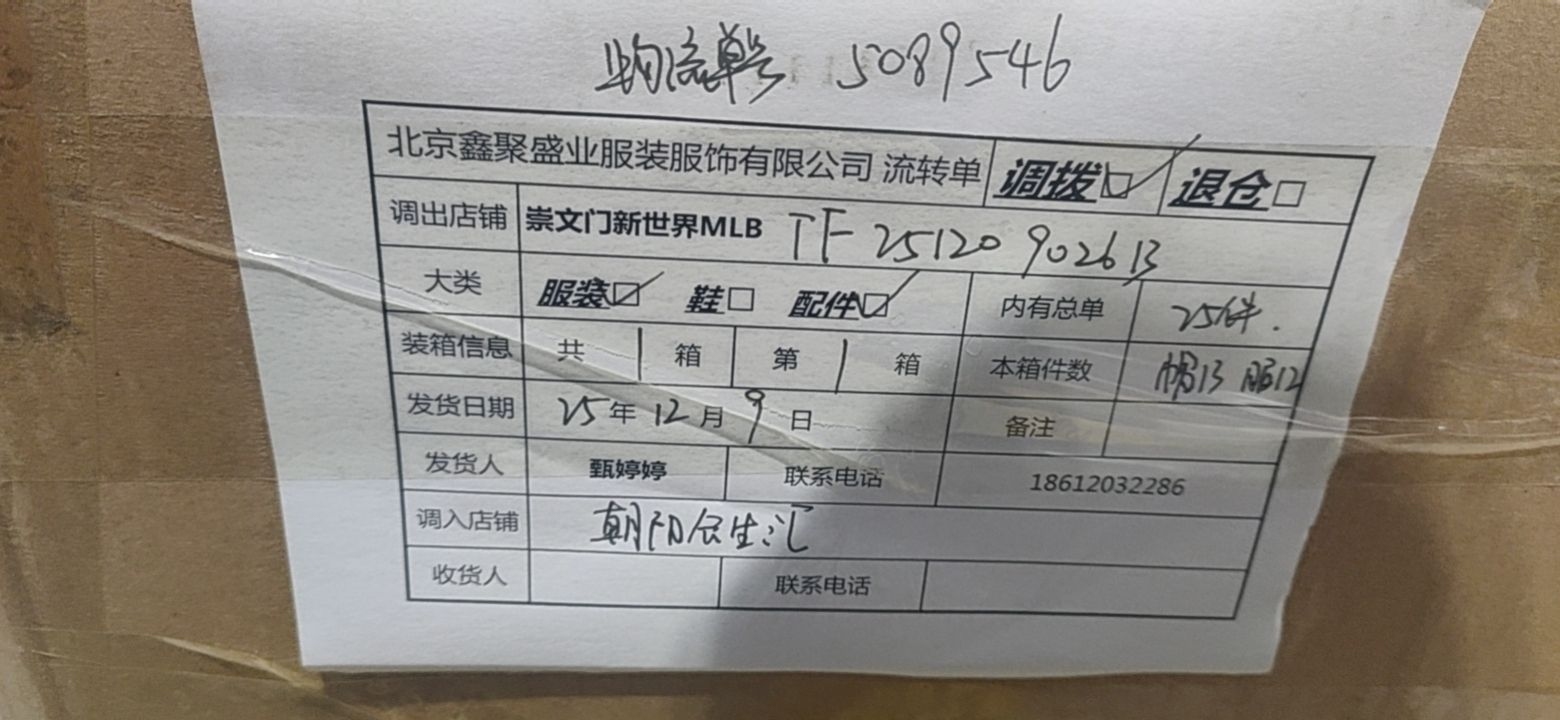 物流单号 5089546
北京鑫聚盛业服装服饰有限公司 流转单 调拨☑ 退仓□
调出店铺 崇文门新世界MLB TF 25120902613
大类 服装☑ 鞋□ 配件☑ 内有总单 25件.
装箱信息 共 1 箱 第 1 箱 本箱件数 帽13 服12
发货日期 25年 12月 9日 备注
发货人 甄婷婷 联系电话 18612032286
调入店铺 朝阳合生汇
收货人 联系电话